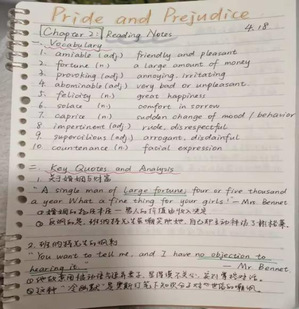 Pride and Prejudice
4.18
Chapter 2: Reading Notes
一. Vocabulary
1. amiable (adj.) friendly and pleasant
2. fortune (n.) a large amount of money
3. provoking (adj.) annoying, irritating
4. abominable (adj.) very bad or unpleasant
5. felicity (n.) great happiness
6. solace (n.) comfort in sorrow
7. caprice (n.) sudden change of mood / behavior
8. impertinent (adj.) rude, disrespectful
9. supercilious (adj.) arrogant, disdainful
10. countenance (n.) facial expression
二. Key Quotes and Analysis
1. 关于婚姻与财富
"A single man of large fortune, four or five thousand
a year. What a fine thing for your girls." — Mrs. Bennet
2. 班纳特先生的讽刺
"You want to tell me, and I have no objection to
hearing it." — Mr. Bennet